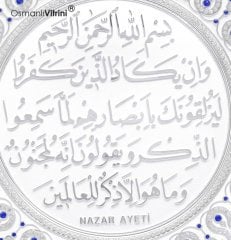 OsmanlıVitrini®
بِسْمِ اللّٰهِ الرَّحْمٰنِ الرَّحِيمِ
وَاِنْ يَكَادُ الَّذِينَ كَفَرُوا
لَيُزْلِقُونَكَ بِاَبْصَارِهِمْ لَمَّا سَمِعُوا
الذِّكْرَ وَيَقُولُونَ اِنَّهُ لَمَجْنُونٌ
وَمَا هُوَ اِلَّا ذِكْرٌ لِلْعَالَمِينَ
NAZAR AYETİ